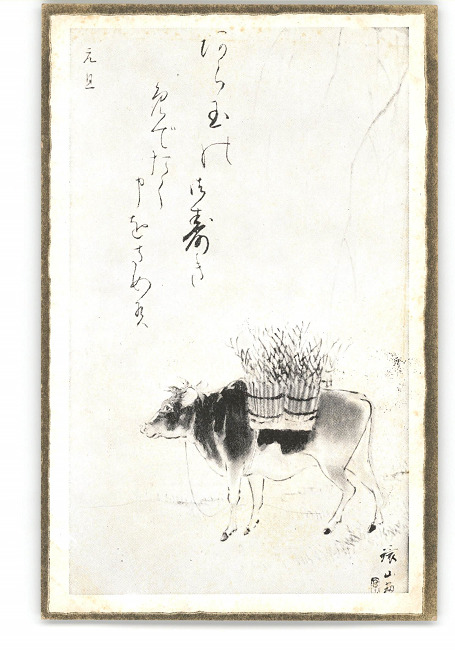 あら玉の御寿き
めでたく申をさめ候
元旦
山